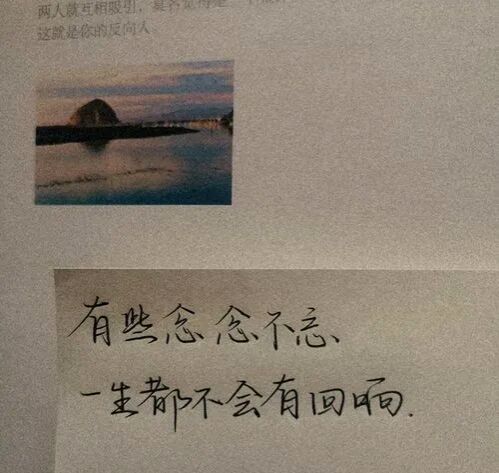 两人就互相吸引，莫名觉得是一个
这就是你的反向人
有些念念不忘、
一生都不会有回响.